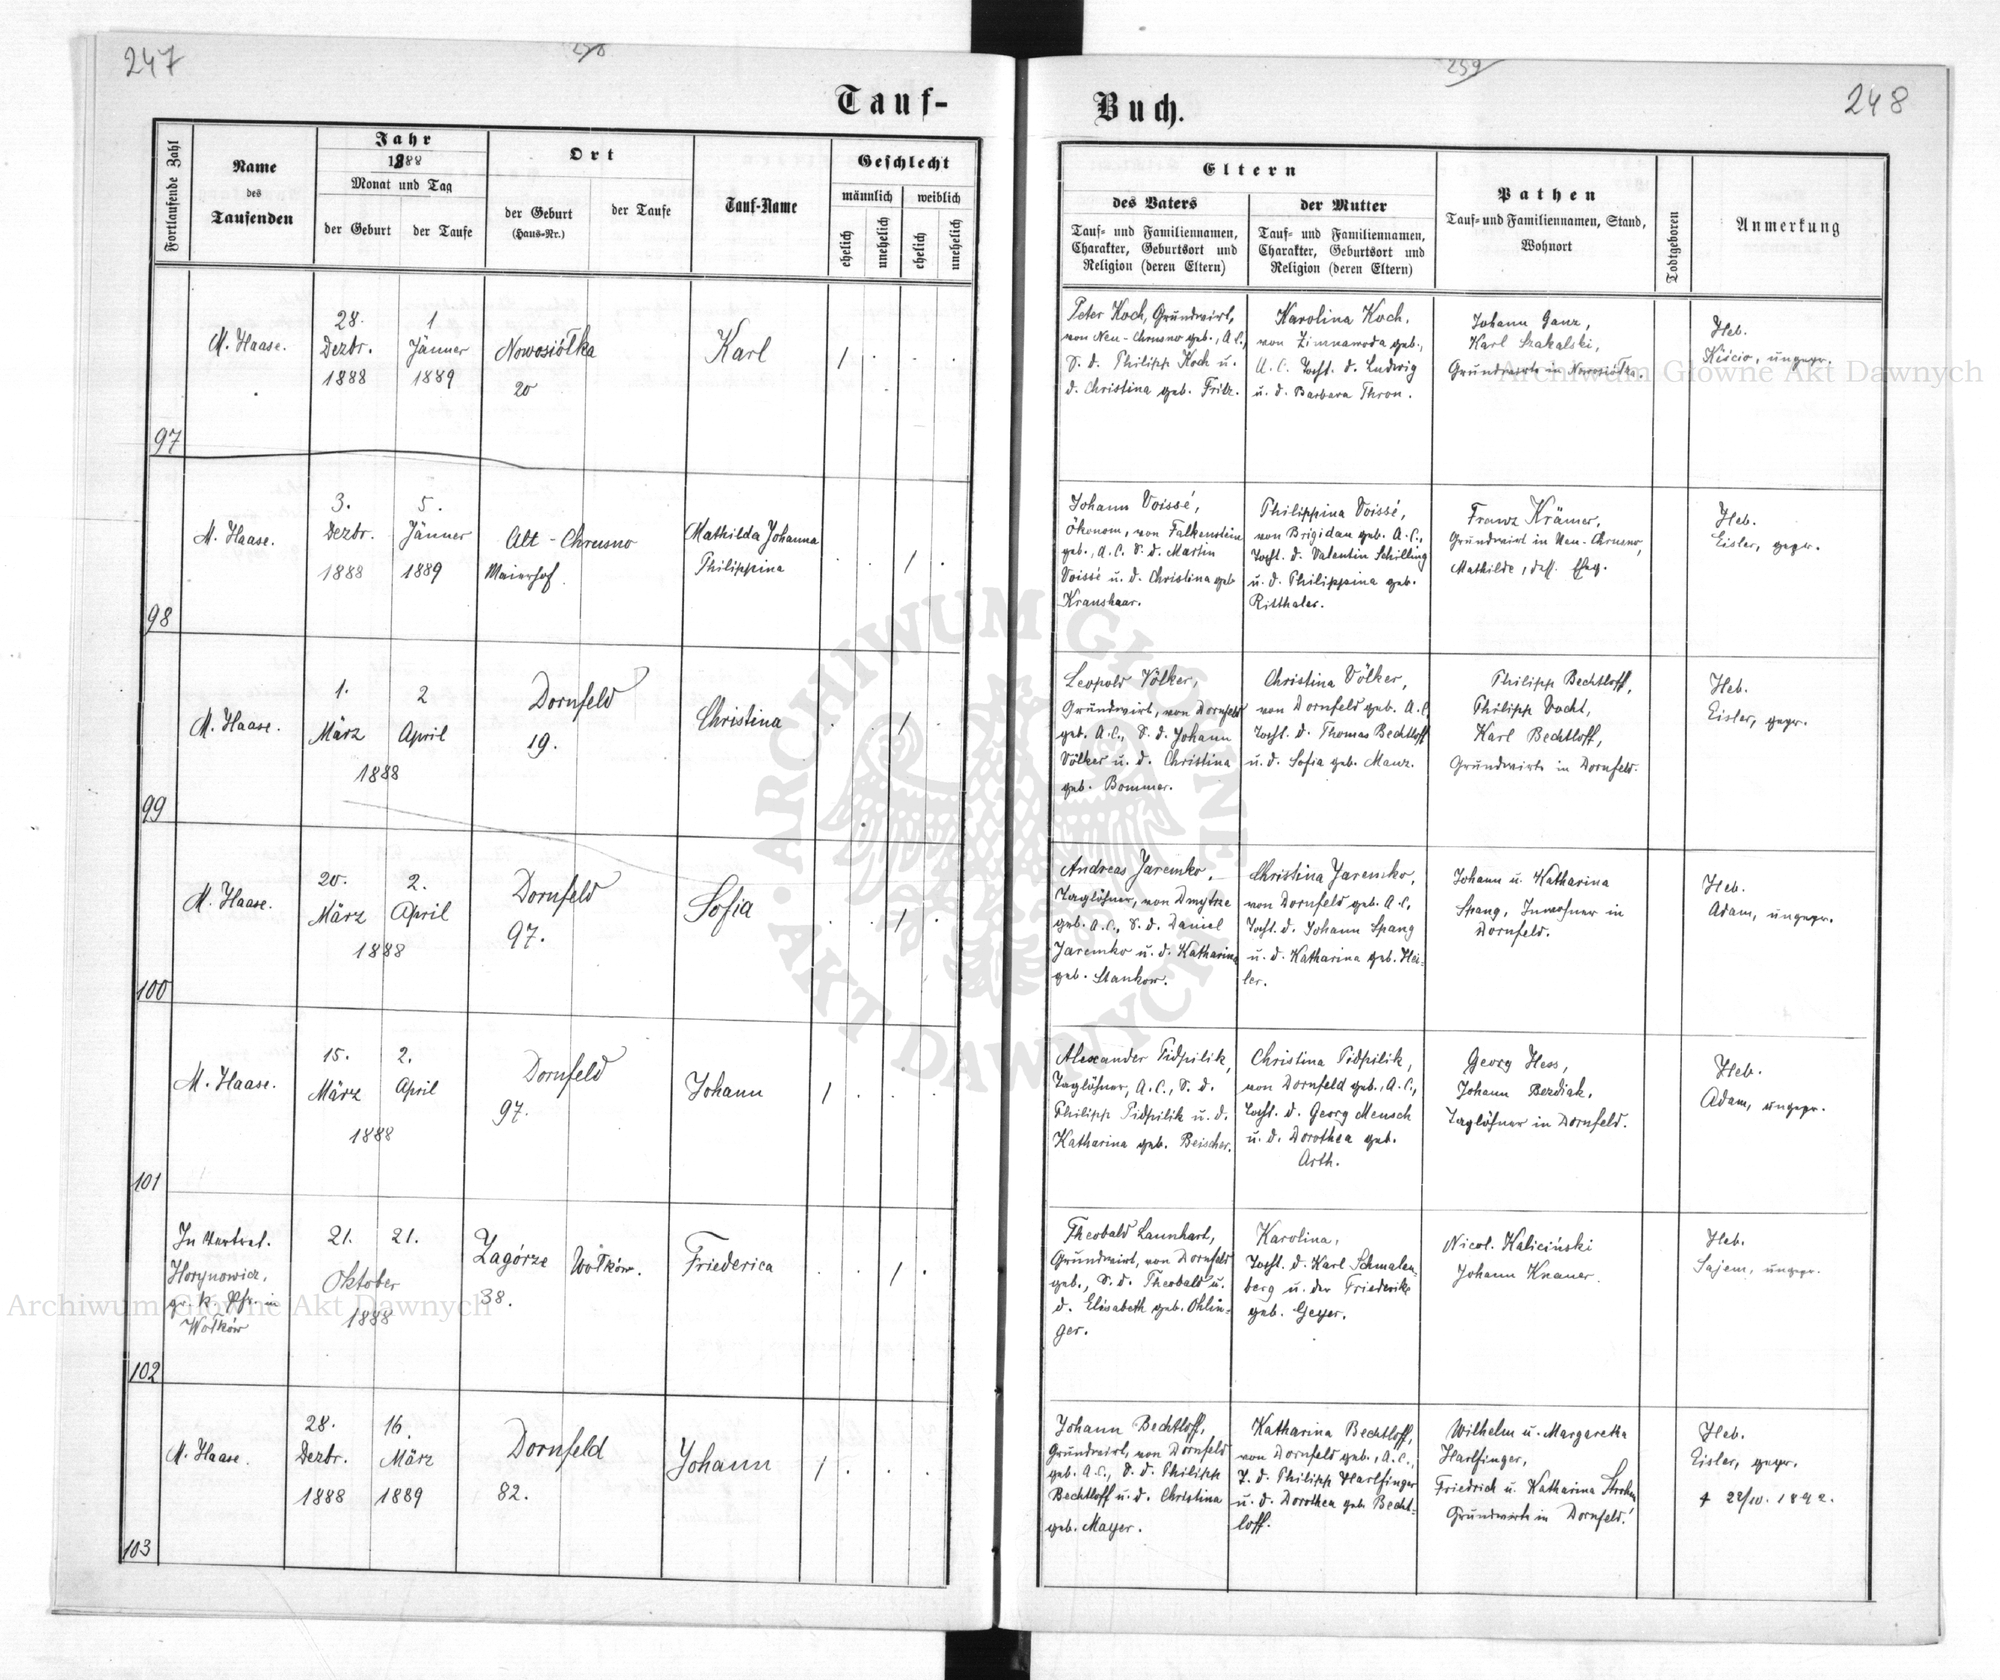 247
258
Tauf-
Fortlaufende Zahl
Name
des
Taufenden
Jahr
1888
Monat und Tag
der Geburt
der Taufe
Ort
der Geburt
(Haus-Nr.)
der Taufe
Tauf-Name
Geschlecht
männlich
weiblich
ehelich
unehelich
ehelich
unehelich
97
M. Haase.
28.
Dezbr.
1888
1
Jänner
1889
Nowosiółka
20
Karl
98
M. Haase.
3.
Dezbr.
1888
5.
Jänner
1889
Alt - Chrusno
Maierhof.
Mathilda Johanna
Philippina
99
M. Haase.
1.
März
2
April
1888
Dornfeld
19.
Christina
100
M. Haase.
20.
März
2.
April
1888
Dornfeld
97.
Sofia
101
M. Haase.
15.
März
2.
April
1888
Dornfeld
97.
Johann
102
In Vertret.
Horynowicz,
gr. k. Pfr. in
Wołków
21.
21.
Oktober
1888
Zagórze
38.
Wołków.
Friederica
103
M. Haase.
28.
Dezbr.
1888
16.
März
1889
Dornfeld
82.
Johann
259
248
Buch.
Eltern
des Vaters
Tauf- und Familiennamen,
Charakter, Geburtsort und
Religion (deren Eltern)
der Mutter
Tauf- und Familiennamen,
Charakter, Geburtsort und
Religion (deren Eltern)
Pathen
Tauf- und Familiennamen, Stand,
Wohnort
Todtgeboren
Anmerkung
Peter Koch, Grundwirt,
von Neu - Chrusno geb., A.C.,
S. d. Philipp Koch u.
d. Christina geb. Fritz.
Karolina Koch,
von Zimnawoda geb.,
A.C. Tocht. d. Ludwig
u. d. Barbara Thron.
Johann Ganz,
Karl Szakalski,
Grundwirte in Nowosiółka.
Heb.
Kiścio, ungepr.
Johann Voissé,
Ökonom, von Falkenstein
geb., A.C. S. d. Martin
Voissé u. d. Christina geb.
Kranshaar.
Philippina Voissé,
von Brigidau geb. A.C.,
Tocht. d. Valentin Schilling
u. d. Philippina geb.
Ritthaler.
Franz Krämer,
Grundwirt in Neu-Chrusno,
Mathilde, dess. Eheg.
Heb.
Eisler, gepr.
Leopold Völker,
Grundwirt, von Dornfeld
geb. A.C., S. d. Johann
Völker u. d. Christina
geb. Bommer.
Christina Völker,
von Dornfeld geb. A.C.
Tocht. d. Thomas Bechtloff
u. d. Sofia geb. Manz.
Philipp Bechtloff,
Philipp Vocht,
Karl Bechtloff,
Grundwirte in Dornfeld.
Heb.
Eisler, gepr.
Andreas Jaremko,
Taglöhner, von Dmytrze
geb. A.C., S. d. Daniel
Jaremko u. d. Katharina
geb. Stankow.
Christina Jaremko,
von Dornfeld geb. A.C.
Tocht. d. Johann Spang
u. d. Katharina geb. Hei-
ler.
Johann u. Katharina
Spang, Inwohner in
Dornfeld.
Heb.
Adam, ungepr.
Alexander Pidpilik,
Taglöhner, A.C., S. d.
Philipp Pidpilik u. d.
Katharina geb. Beischer.
Christina Pidpilik,
von Dornfeld geb., A.C.,
Tocht. d. Georg Mensch
u. d. Dorothea geb.
Arth.
Georg Hess,
Johann Berdiak,
Taglöhner in Dornfeld.
Heb.
Adam, ungepr.
Theobald Launhart,
Grundwirt, von Dornfeld
geb., S. d. Theobald u.
d. Elisabeth geb. Ohlin-
ger.
Karolina,
Tocht. d. Karl Schmalen-
berg u. der Friederike
geb. Geyer.
Nicol. Kaliciński
Johann Knauer.
Heb.
Sajem, ungepr.
Johann Bechtloff,
Grundwirt, von Dornfeld
geb. A.C., S. d. Philipp
Bechtloff u. d. Christina
geb. Mayer.
Katharina Bechtloff,
von Dornfeld geb., A.C.,
T. d. Philipp Harlfinger
u. d. Dorothea geb. Becht-
loff.
Wilhelm u. Margaretha
Harlfinger,
Friedrich u. Katharina
Grundwirte in Dornfeld.
Heb.
Eisler, gepr.
† 22/10. 1892.
ARCHIWUM GŁÓWNE AKT DAWNYCH
Archiwum Główne Akt Dawnych
Archiwum Główne Akt Dawnych